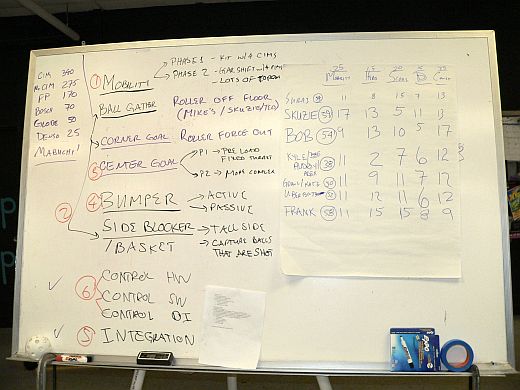 CIM 340
275
FP 170
BOSCH 70
GLOBE 50
DENSO 25
MABUCHI
① MOBILITY
→ PHASE 1 - KIT W/ 4 CIMS
→ PHASE 2 - GEAR SHIFT W/ 4 CIMS
- LOTS OF TORQUE
BALL GATHER ROLLER OFF FLOOR
(MIKE'S / SKUZIE/TED)
CORNER GOAL ROLLER FORCE OUT
③ CENTER GOAL → P1 → PRE LOAD
FIXED THREAT
→ P2 → MORE COMPLEX
②
④ BUMPER → ACTIVE
→ PASSIVE
SIDE BLOCKER → TALL SIDE
/BASKET → CAPTURE BALLS
THAT ARE SHOT
⑥ CONTROL HW
CONTROL SW
CONTROL OI
⑤ INTEGRATION
25 15 20
MOBILITY SCORE
11 8 15 7 13
SKUZIE 59 17 13 5 11 13
BOB 54 9 13 10 5 17
KYLE 38 11 2 7 6 12
11 9 11 7 12
11 12 11 6 12
FRANK 58 11 15 15 8 9
EXPO